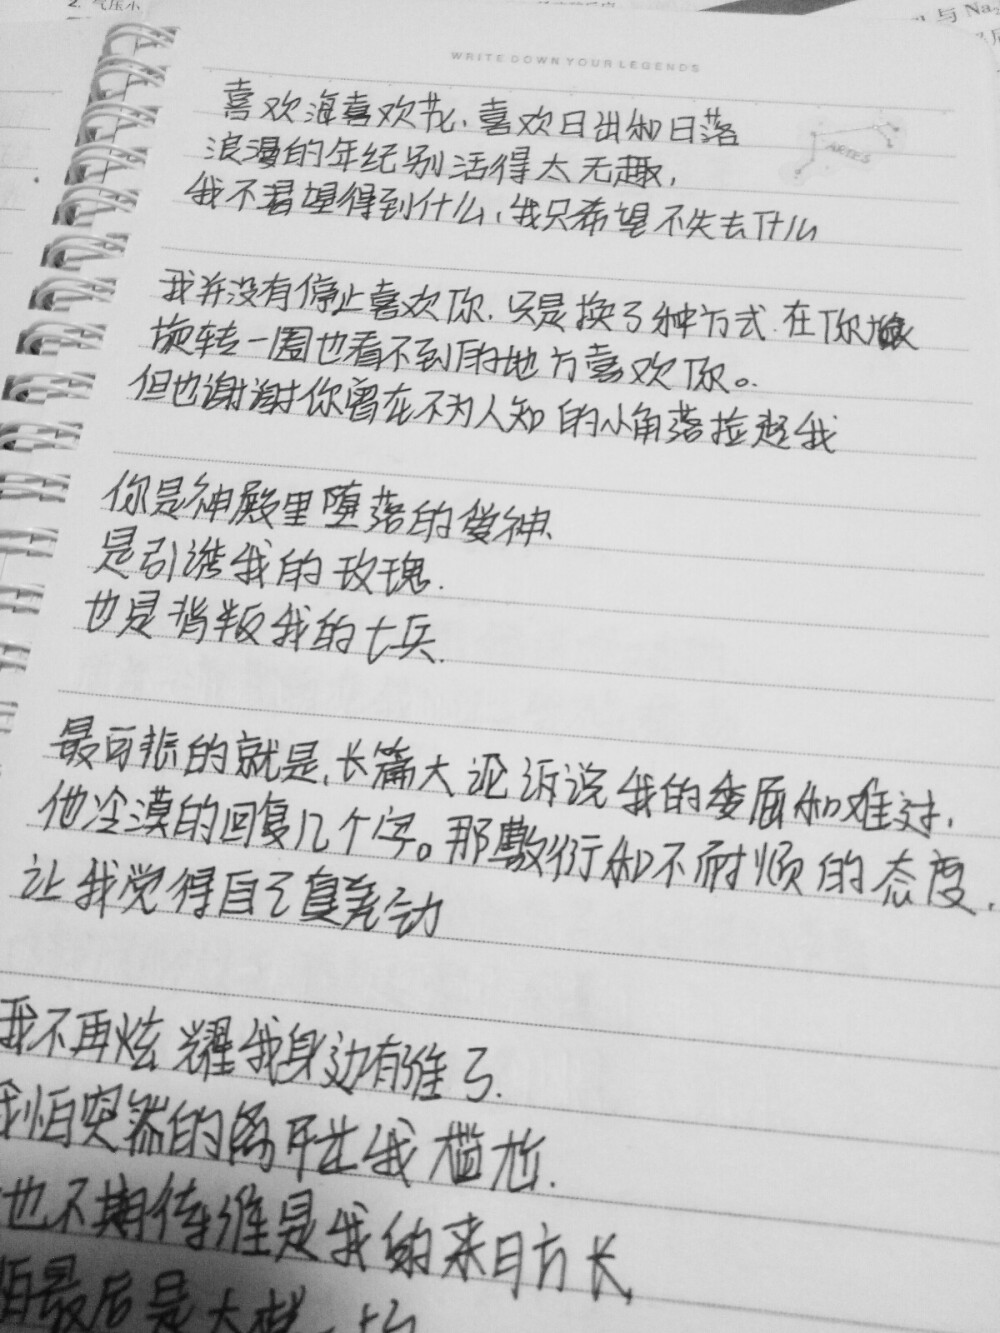 2. 气压小
与 Na₂
WRITE DOWN YOUR LEGENDS
喜欢海喜欢花,喜欢日出和日落
ARIES
浪漫的年纪别活得太无趣,
我不渴望得到什么,我只希望不失去什么
我并没有停止喜欢你,只是换了种方式.在你
旋转一圈也看不到的地方喜欢你。
但也谢谢你曾在不为人知的小角落捡起我
你是神殿里堕落的爱神、
是引诱我的玫瑰.
也是背叛我的士兵.
最可悲的就是,长篇大论诉说我的委屈和难过,
他冷漠的回复几个字。那敷衍和不耐烦的态度.
让我觉得自己真壳动
我不再炫耀我身边有谁了.
我怕突然的离开让我尴尬.
也不期待谁是我的来日方长
怕最后是大梦一场